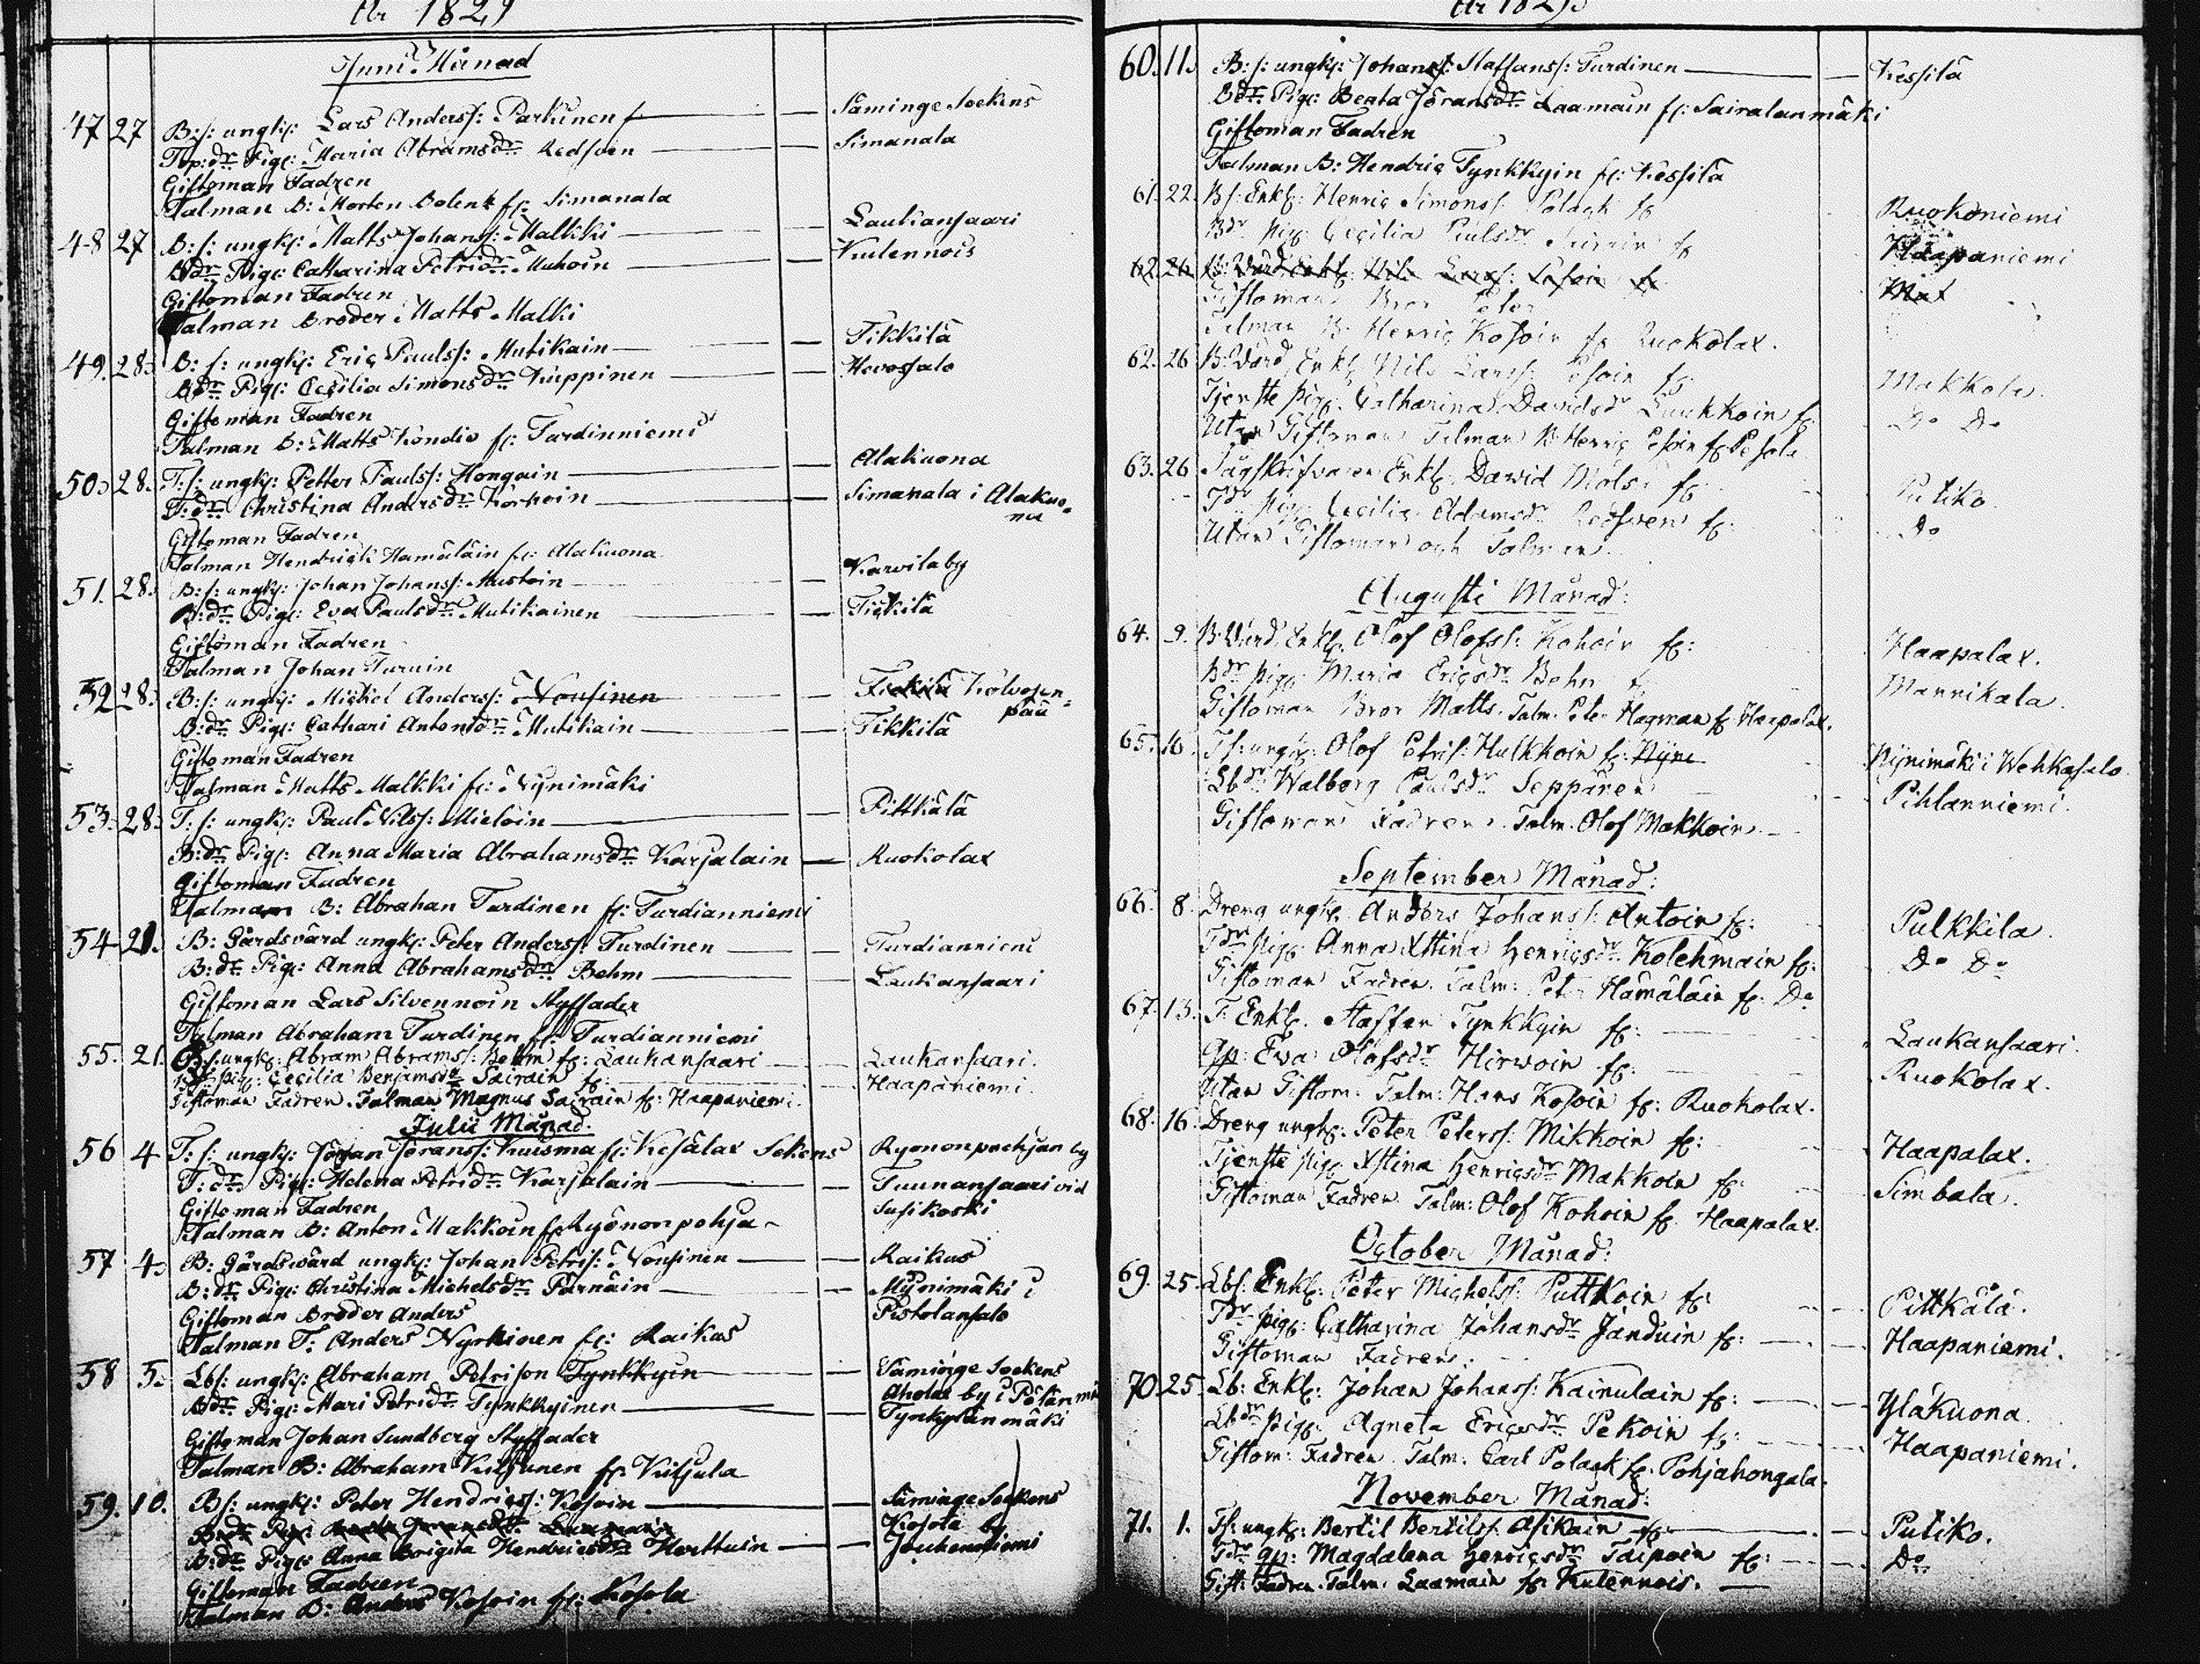 År 1829
Juni Månad
47 27 B: s: ungk: Lars Anderss: Parkinen fr Säminge Sockens
Tp: dr Pig: Maria Abramsdr Redsven Simanala
Giftoman Fadren
Talman B: Morten Bolent fr: Simanala
48 27 B: s: ungk: Matts Johanss: Malkki Laukansaari
Bdr Pig: Catharina Petridr Muhoin Kulennois
Giftoman Fadren
Talman Broder Matts Malki
49. 28. B: s: ungk: Eric Paulss: Mutikain Tikkilä
Bdr Pig: Cecilia Simonsdr Kuippinen Hevossalo
Giftoman Fadren
Talman B: Matts Kondie fr: Turdinniemi
50. 28. T: s: ungk: Petter Paulss: Hongain Alakuona
T: dr: Christina Andersdr Korhoin Simanala i Alakuo-
na
Giftoman Fadren
Talman Hendrick Hämäläin fr: Alakuona
51. 28. B: s: ungk: Johan Johanss: Mustoin Karvilaby
B: dr: Pig: Eva Paulsdr: Mutikainen Tickilä
Giftoman Fadren
Talman Johan Turuin
52 28. B: s: ungk: Mickel Anderss: Nousinen Tickilä Kolvosen-
pää
B: dr Pig: Cathari Antonsdr Mutikain Tikkilä
Giftoman Fadren
Talman Matts Malkki fr: Nynimäki
53. 28. T: s: ungk: Paul Nilss: Mieloin Pittkälä
B: dr Pig: Anna Maria Abrahamsdr Karjalain Ruokolax
Giftoman Fadren
Talman B: Abrahan Turdinen fr: Turdianniemi
54 21. B: Gårdsvärd ungk: Peter Anderss: Turdinen Turdianniemi
B: dr Pig: Anna Abrahamsdr Behm Laukansaari
Giftoman Lars Silvennoin Styffader
Talman Abraham Turdinen fr: Turdianniemi
55. 21. Bs: ungk: Abram Abramss: Behm fr: Laukansaari Laukansaari.
Bdr pig: Cecilia Benjamsdr Sairain fr: Haapaniemi.
Giftoman Fadren. Talman Magnus Sairain fr: Haapaniemi.
Julii Månad.
56 4 T: s: ungk: Jöran Jöranss: Kuisma fr: Kesälax Sokens Ryönonpochjan by
T: dr: Pig: Helena Petridr Karjalain Tuunansaari vid
Giftoman Fadren Susikoski
Talman B: Anton Makkoin fr Ryönonpohja
57 4. B: Gårdsvärd ungk: Johan Petris: Nousinen Raikus
B: dr: Pig: Christina Michelsdr Pärnäin Mynimäki i
Giftoman Broder Anders Pistolansalo
Talman T: Anders Nyrhinen fr: Raikus
58 5. Lbs: ungk: Abraham Petrison Tynkkyin Säminge Sockens
Bdr: Pig: Mari Petridr Tynkkyinen Ahola by i Pölän mä
Tynkyläinmäki
Giftoman Johan Sundberg Styffader
Talman B: Abraham Kiiljunen fr: Kiiljula
59. 10. Bs: ungk: Peter Hendricss: Kosoin Säminge Sockens
B: dr Pig: Beata Göransdtr Laamain Kosola by
B: dr Pig: Anna Brigita Hendricsdr Herttuin Jouhenniemi
Giftoman Fadren
Talman B: Anders Kosoin fr: Kosola
År 1829.
60. 11. B: s: ungk: Johan Staffanss: Turdinen Kessilä
Bdr Pig: Beata Jöransdr Laamain fr: Sairalanmäki
Giftoman Fadren
Talman B: Hendric Tynkkyin fr: Kessilä
61. 22. Bs: Enkl: Henric Simonss: Polack fr Ruokoniemi
Bdr pig: Cecilia Paulsdr Sairain fr Haapaniemi
62. 26. B: Värd Enkl: Nils Larss: fr
Giftoman Bror Peter
Talman B: Henric Kosoin fr Ruokolax.
62. 26 B: Värd Enkl Nils Larss: fr: Makkola.
Tjenste pig: Catharina Davidsdr Luukkoin fr Do Do
Utan Giftoman Talman B: Henric fr
63. 26 Enkl: David fr Putiko
Tdr pig: Cecilia Adamsdr Redsven fr: Do
Utan Giftoman och Talman
Augusti Månad:
64. 9. B: Värd Enkl: Olof Olofss: Kohoin fr: Haapalax.
Bdr pig: Maria Ericsdr Behm fr Mannikala.
Giftoman Bror Matts. Talm: Peter Hagman fr Haapalax.
65. 10. Ts: ungk: Olof Petris: Hulkkoin fr: Nyni Nynimäki i Wehkasalo
Lbdr Walborg Paulsdr Seppänen Pihlanniemi.
Giftoman Fadren. Talm: Olof Makkoin.
September Månad:
66. 8. Dreng ungk: Anders Johanss: Antoin fr: Pulkkila.
Tdr pig: Anna Xstina Henricsdr Kolehmain fr: Do Do
Giftoman Fadren. Talm: Peter Hämäläin fr: Do
67. 13. T. Enkl: Staffan Tynkkyin fr: Laukansaari.
Qp: Eva Olofsdr Hirwoin fr: Ruokolax.
Utan Giftom: Talm: Hans Kosoin fr: Ruokolax.
68. 16. Dreng ungk: Peter Peterss: Mikkoin fr: Haapalax.
Tjenste pig: Xstina Henricsdr Makkoin fr: Simbala.
Giftoman Fadren Talm: Olof Kohoin fr. Haapalax.
October Månad:
69. 25. Lbs: Enkl: Peter Michelss: Puttkoin fr: Pittkälä.
Tdr pig: Catharina Johansdr Janduin fr: Haapaniemi.
Giftoman Fadren.
70. 25. Lb: Enkl: Johan Johanss: Kainulain fr: Yläkuona.
Lbdr pig: Agneta Ericsdr Pekoin fr: Haapaniemi.
Giftom: Fadren. Talm: Carl Polack fr: Pohjahongala.
November Månad:
71. 1. Ts: ungk: Bertil Bertilss: Asikain fr: Putiko.
Tdr qp: Magdalena Henricsdr Taipain fr: Do
Gift: Fadren. Talm: Laamain fr: Kulennois.